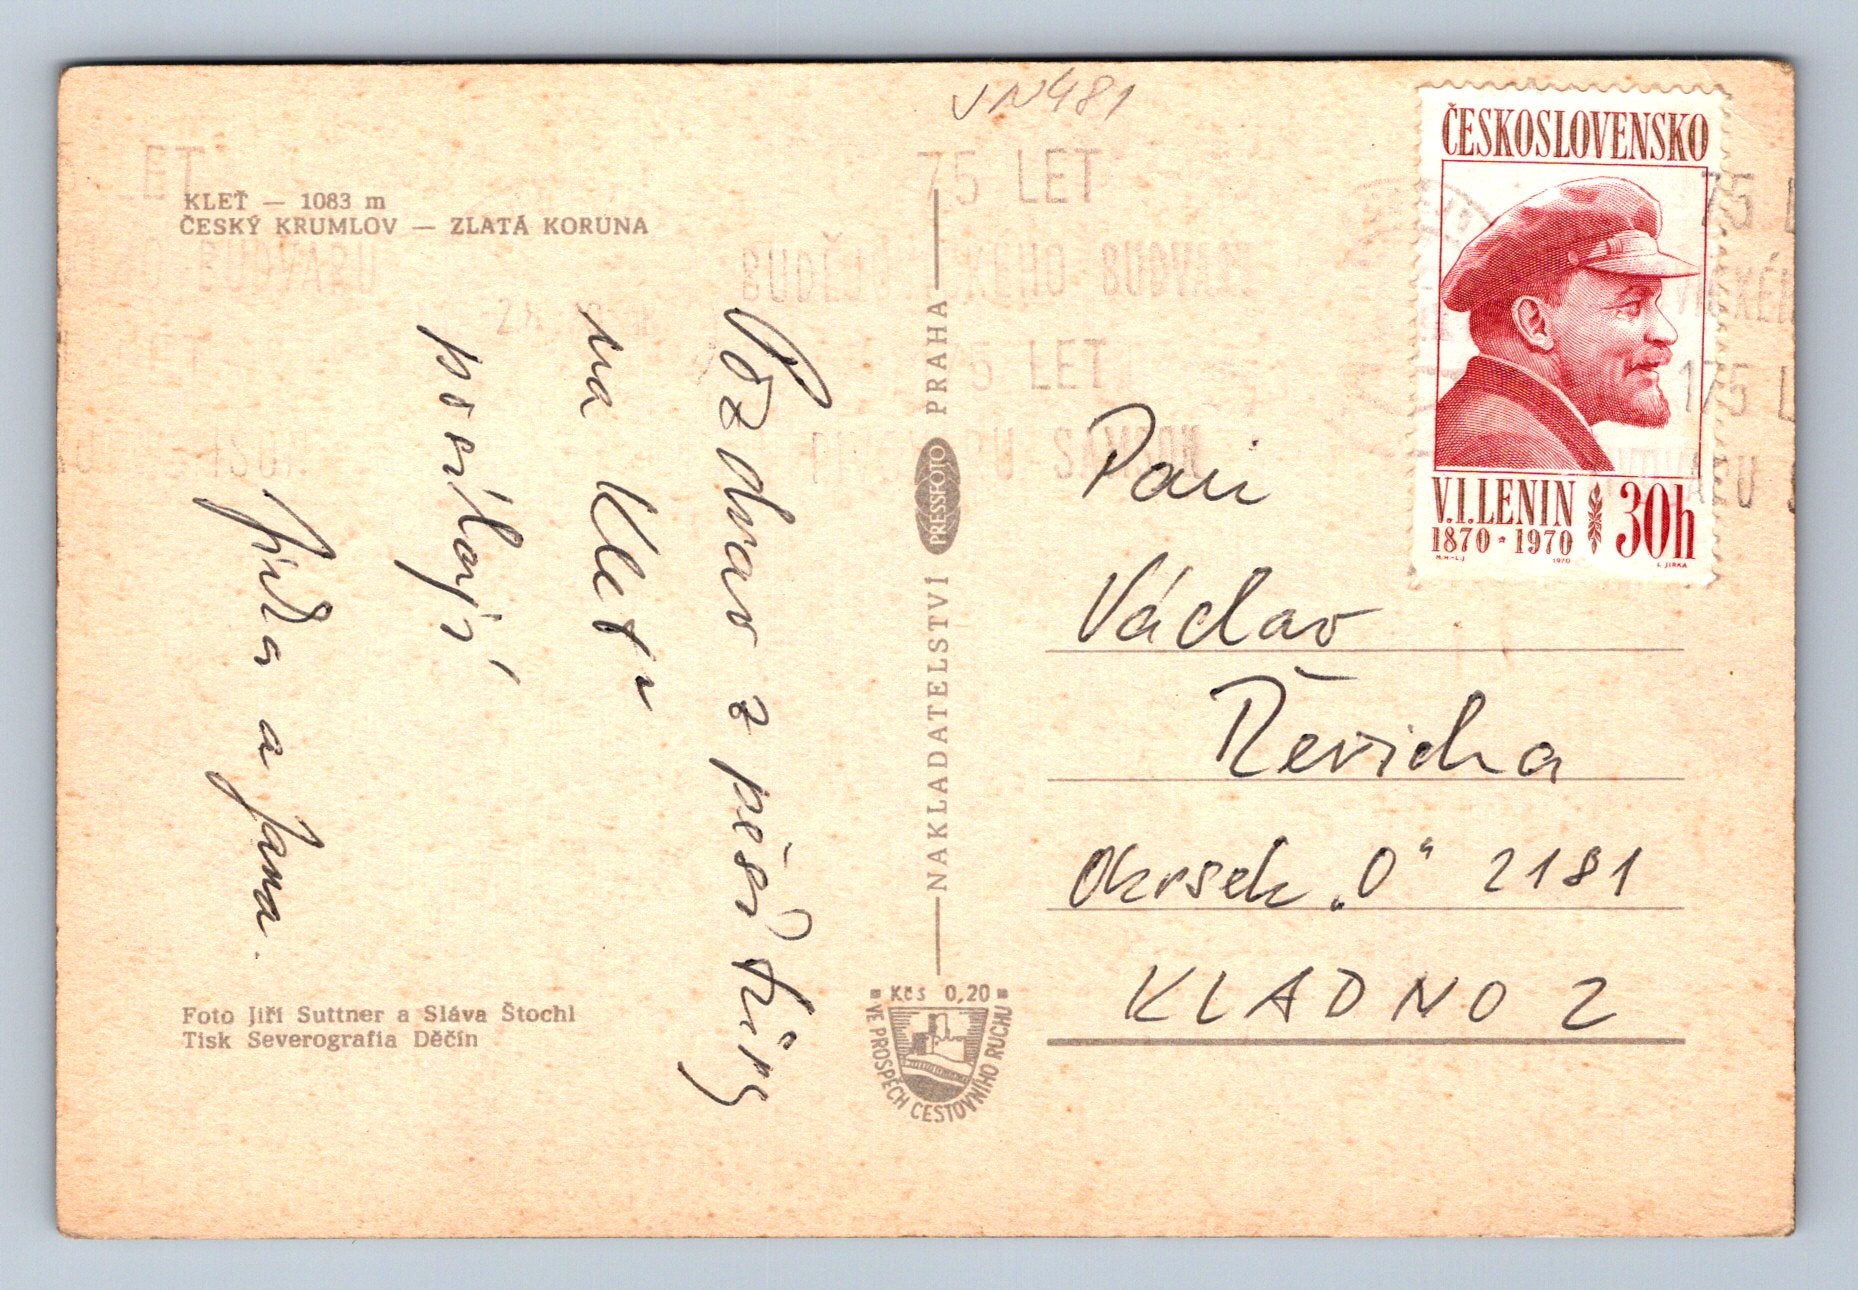 VN481
KLEŤ — 1083 m
ČESKÝ KRUMLOV — ZLATÁ KORUNA
Pozdrav z pěší túry
na Kleť
posílají
Jirka a Jana.
Foto Jiří Suttner a Sláva Štochl
Tisk Severografia Děčín
NAKLADATELSTVÍ PRESSFOTO PRAHA
Kčs 0,20
VE PROSPĚCH CESTOVNÍHO RUCHU
75 LET
BUDĚJOVICKÉHO BUDVARU
75 LET
SAMSON
ČESKOSLOVENSKO
V.I.LENIN
1870 * 1970
30h
1970
L. JIRKA
Pan
Václav
Řevicha
Okrsek „0“ 2181
KLADNO 2